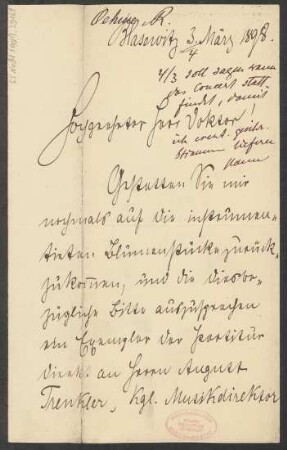 Oehme, R.
Blasewitz 3/4 März 1898.
4/3 soll sagen wann
das Concert statt
findet, damit
Hochgeehrter Herr Doktor!
ich event.
Stimmen liefern
kann
Gestatten Sie mir
nochmals auf die instrumen-
tierten Blumenstücke zurück-
zukommen, und die diesbe-
zügliche Bitte auszusprechen
ein Exemplar der Partitur
direkt an Herrn August
Trenkler, Kgl. Musikdirektor